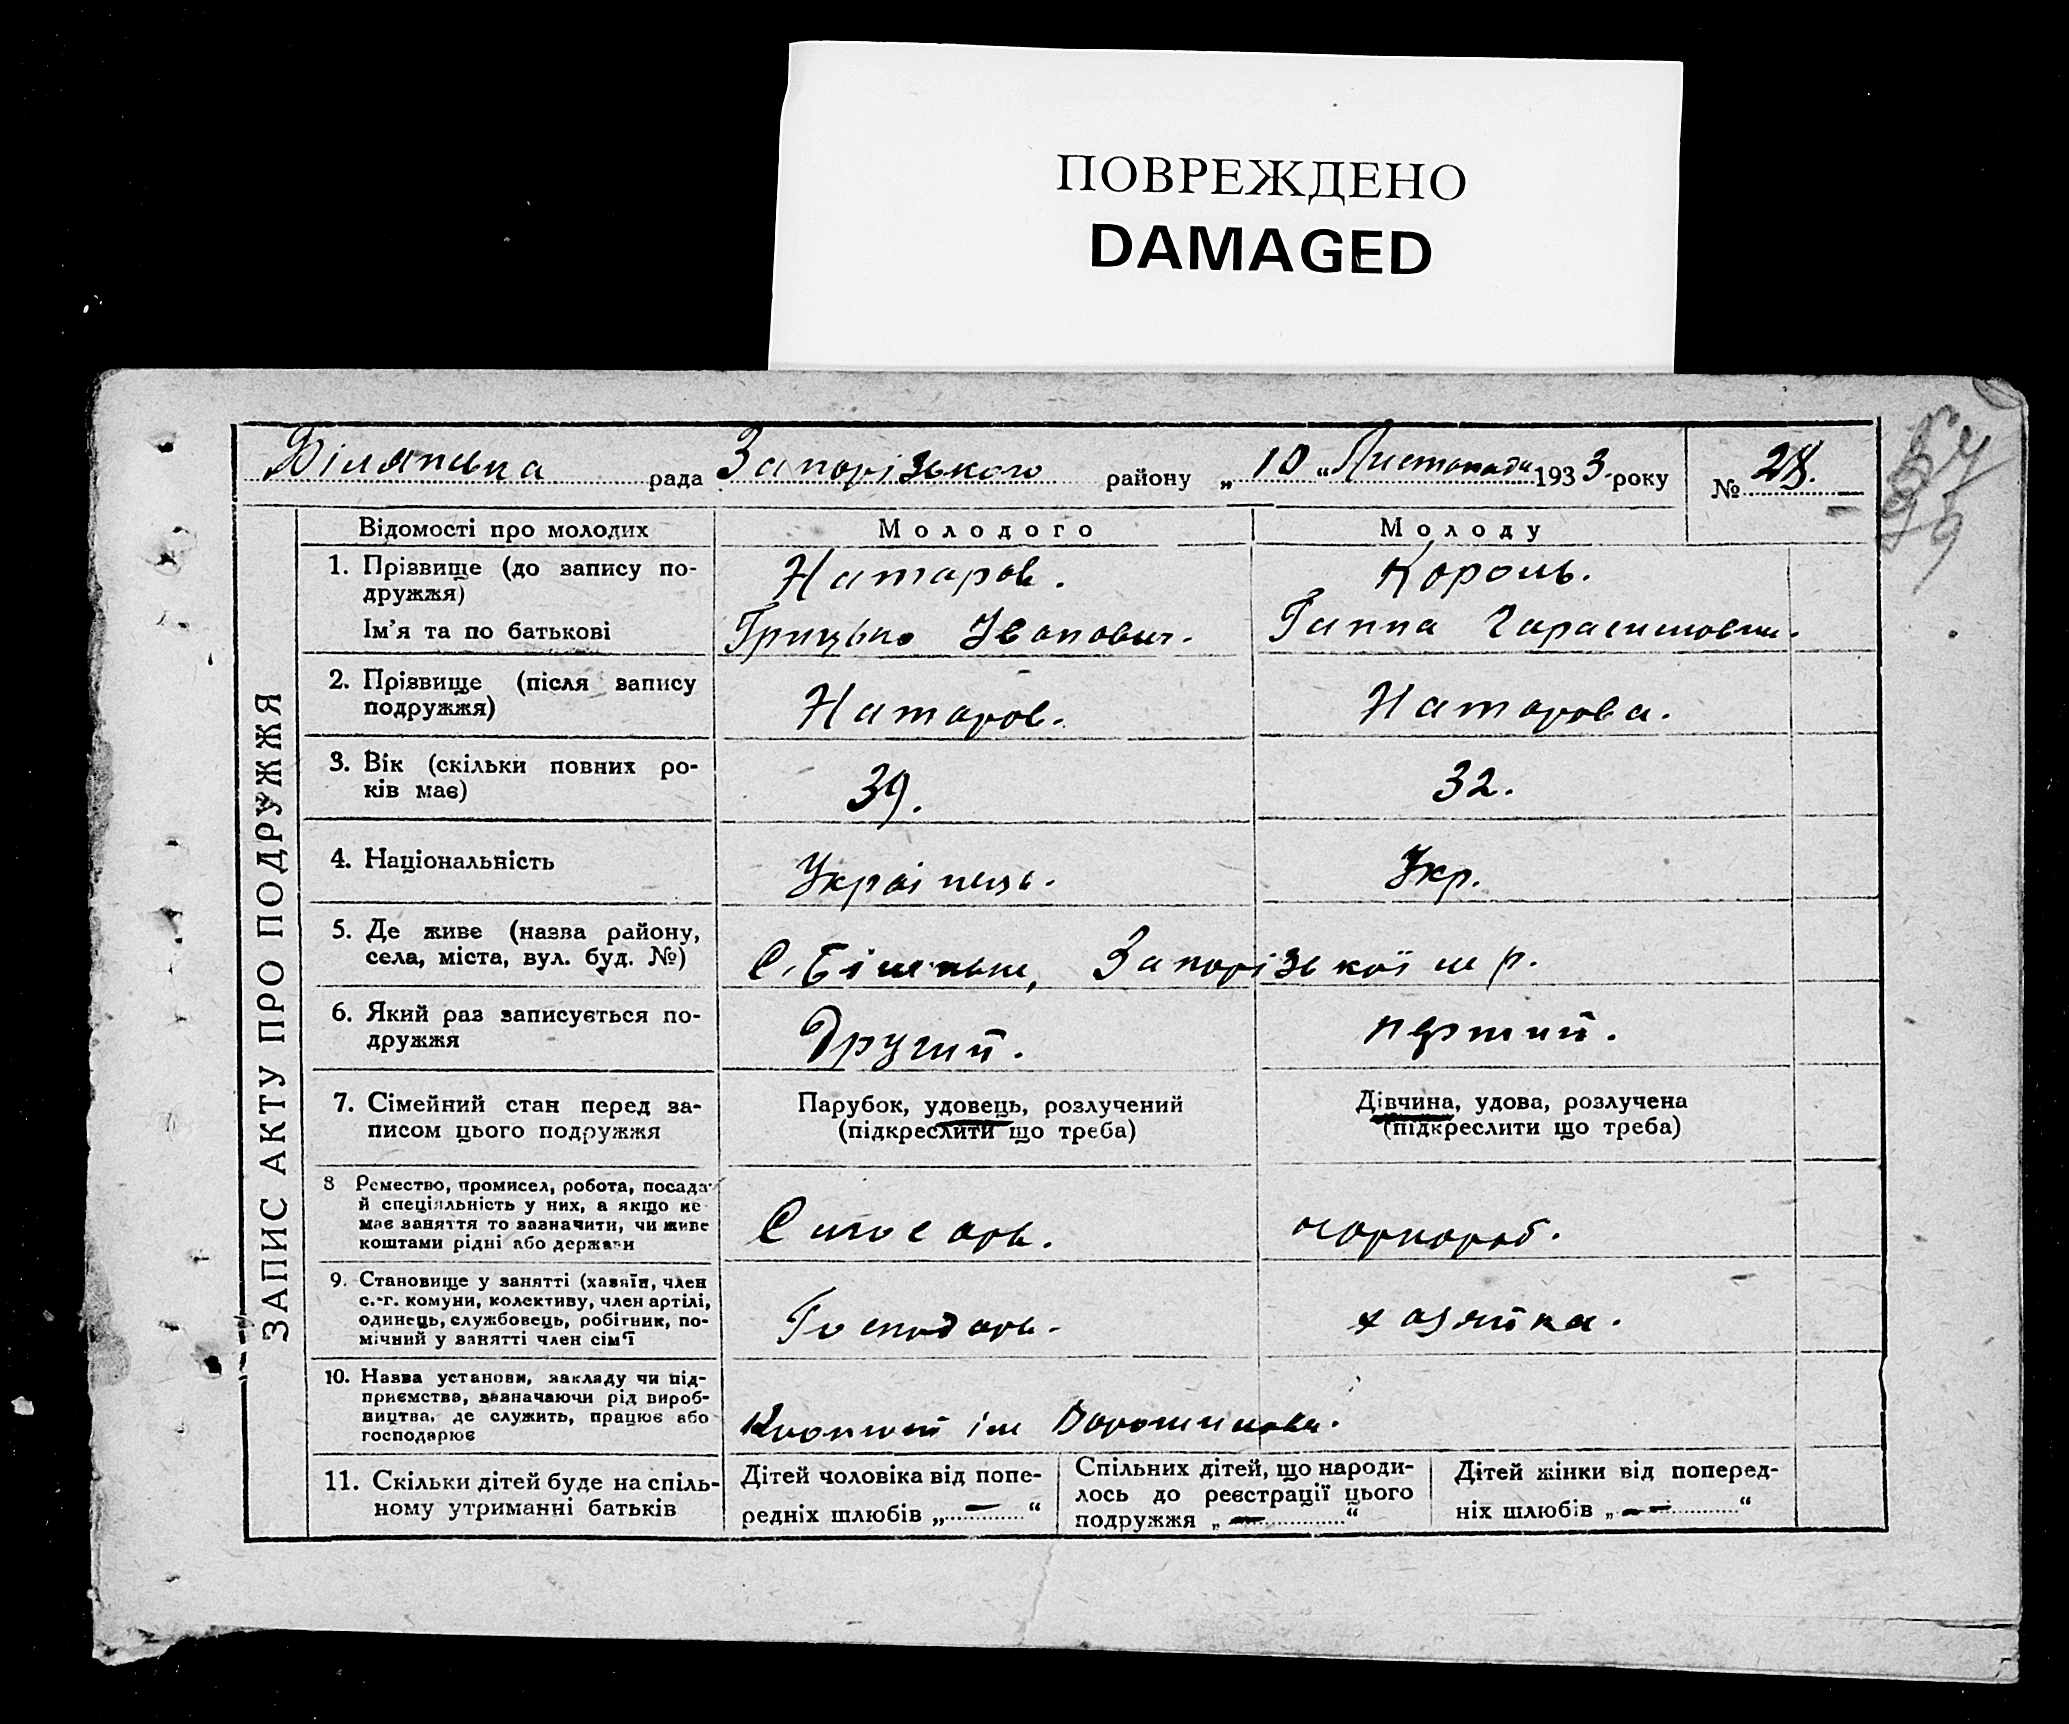 ПОВРЕЖДЕНО
DAMAGED
рада Запорізького району „ 10 “ Листопада 1933 року № 28.
ЗАПИС АКТУ ПРО ПОДРУЖЖЯ
Відомості про молодих Молодого Молоду
1. Прізвище (до запису по-
дружжя) Натаров. Король.
Ім'я та по батькові Грицько Іванович. Ганна Гарасимовна.
2. Прізвище (після запису
подружжя) Натаров. Натарова.
3. Вік (скільки повних ро-
ків має) 39. 32.
4. Національність Українець. Укр.
5. Де живе (назва району,
села, міста, вул. буд. №) С. Запорізької м р.
6. Який раз записується по-
дружжя Другий. перший.
7. Сімейний стан перед за-
писом цього подружжя
Парубок, удовець, розлучений
(підкреслити що треба)
Дівчина, удова, розлучена
(підкреслити що треба)
8 Ремество, промисел, робота, посада
й спеціяльність у них, а якщо не
має заняття то зазначити, чи живе
коштами рідні або держави
Слюсарь. чорнороб.
9. Становище у занятті (хазяїн, член
с.-г. комуни, колективу, член артілі,
одинець, службовець, робітник, по-
мічний у занятті член сім'ї
Господарь. хазяйка.
10. Назва установи, закладу чи під-
приємства, зазначаючи рід вироб-
ництва, де служить, працює або
господарює
ім Ворошилова.
11. Скільки дітей буде на спіль-
ному утриманні батьків
Дітей чоловіка від попе-
редніх шлюбів „ — “
Спільних дітей, що народи-
лось до реєстрації цього
подружжя „ — “
Дітей жінки від поперед-
ніх шлюбів „ — “